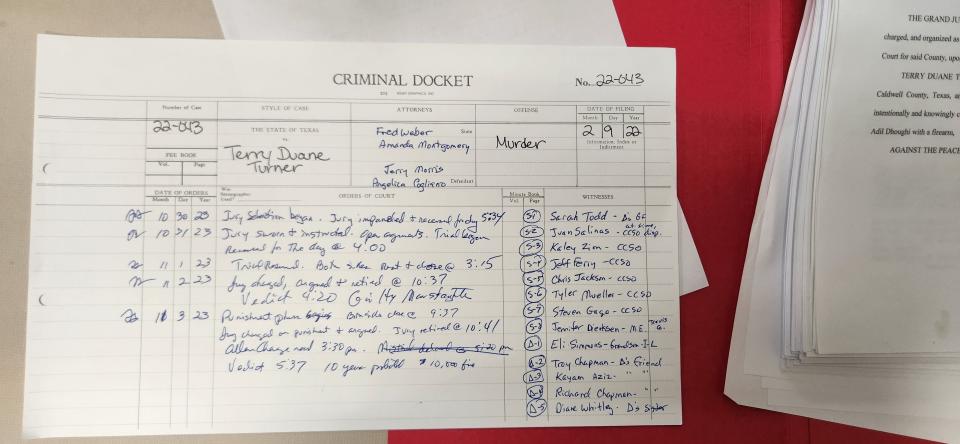 CRIMINAL DOCKET
No. 22-043
Number of Case
STYLE OF CASE
ATTORNEYS
OFFENSE
DATE OF FILING
Month Day Year
22-043
THE STATE OF TEXAS
vs.
Fred Weber State
Amanda Montgomery
Murder
2 9 22
Information, Index or Indictment
FEE BOOK
Vol. Page
Terry Duane
Turner
Jerry Morris
Angelica Cogliano Defendant
DATE OF ORDERS
Month Day Year
Was Stenographer Used?
ORDERS OF COURT
Minute Book
Vol. Page
WITNESSES
10 30 23 Jury Selection began. Jury impaneled + recessed for day 5:34
10 31 23 Jury sworn & instructed. Open arguments. Trial began
Recessed for the day @ 4:00
11 1 23 Trial Resumed. Both sides rest & close @ 3:15
11 2 23 Jury charged, argued & retired @ 10:37
Verdict 4:20 Guilty Manslaughter
11 3 23 Punishment phase begins Both side close @ 9:37
Jury charged on punishment & argued. Jury retired @ 10:41
Allen Charge read 3:30 pm.
Verdict 5:37 10 years probated $10,000 fine
S-1 Sarah Todd - D's GF
at time,
S-2 Juan Salinas - CCSO disp.
S-3 Kaley Zim - CCSO
S-4 Jeff Ferry - CCSO
S-5 Chris Jackson - CCSO
S-6 Tyler Mueller - CCSO
S-7 Steven Gage - CCSO
S-8 Jennifer Diertsen - M.E. Travis Co.
D-1 Eli Simmons - Grandson-I-L
D-2 Troy Chapman - D's Friend
D-3 Kayam Aziz - " "
D-4 Richard Chapman - " "
D-5 Diane Whitley - D's Sister
THE GRAND JU
charged, and organized as
Court for said County, upo
TERRY DUANE T
Caldwell County, Texas, a
intentionally and knowingly c
Adil Dhoughi with a firearm,
AGAINST THE PEACE